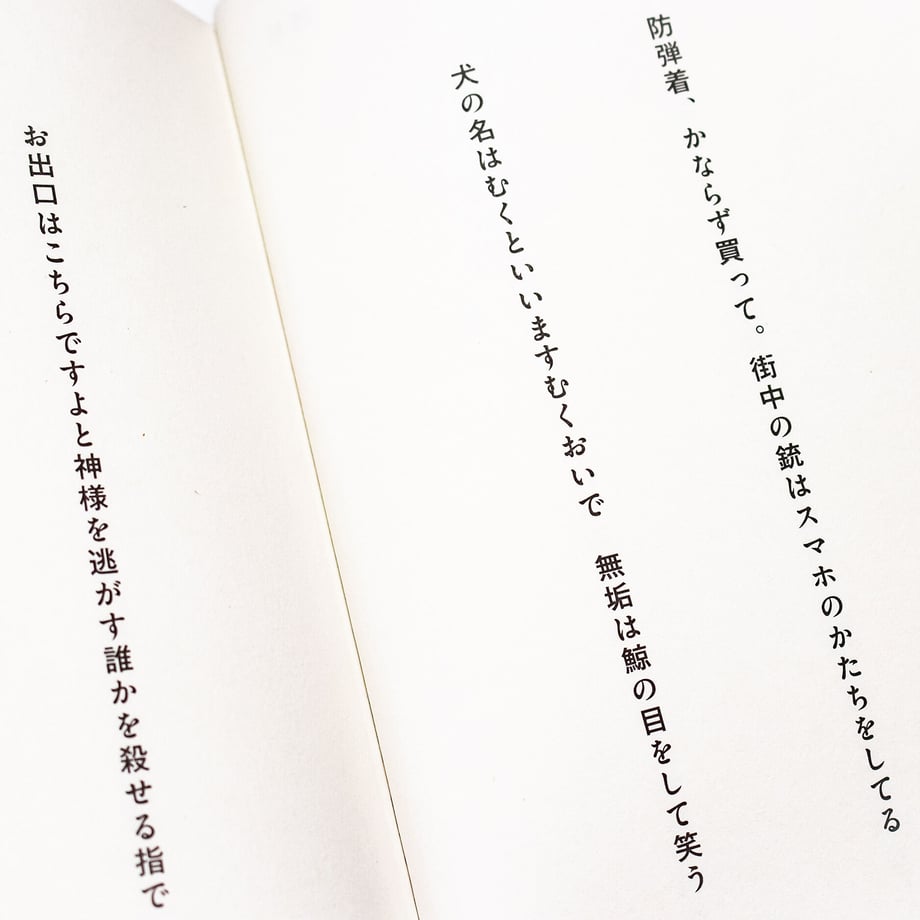 防弾着、かならず買って。街中の銃はスマホのかたちをしてる
犬の名はむくといいますむくおいで　無垢は鯨の目をして笑う
お出口はこちらですよと神様を逃がす誰かを殺せる指で